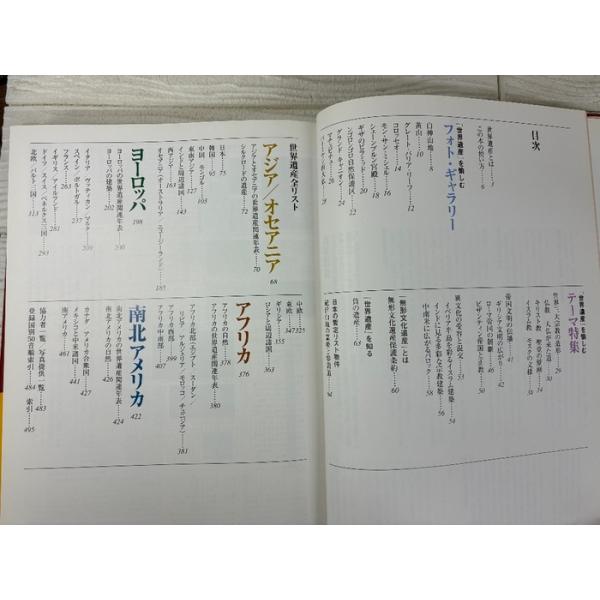 目次
世界遺産とは……5
この本の使い方……6
「世界遺産」を愉しむ
フォト・ギャラリー
白神山地……8
黄山……10
グレート・バリア・リーフ……12
コロッセオ……14
モン・サン・ミシェル……16
シェーンブルン宮殿……18
ギザのピラミッド……20
ンゴロンゴロ自然保護区……22
グランド・キャニオン……24
「世界遺産」を愉しむ
テーマ特集
世界三大宗教の造形……29
仏教 仏の来た道……30
キリスト教 聖堂の変遷……34
イスラム教 モスクの文様……36
帝国文明の伝播……41
ギリシア文明の広がり……42
ローマ帝国の制覇……46
ビザンチン帝国と正教……50
異文化の受容と混交……53
イベリア半島を彩るイスラム建築……54
インドに見る多彩な宗教建築……56
中南米に広がるバロック……58
「無形文化遺産」とは
無形文化遺産保護条約……60
「世界遺産」を知る
負の遺産……63
日本の暫定リスト物件
世界遺産全リスト
アジア/オセアニア 68
アジアとオセアニアの世界遺産関連年表……70
シルクロードの遺産……72
日本……75
韓国……95
中国 モンゴル……105
東南アジア……127
インドと周辺諸国……143
西アジア……163
オセアニア(オーストラリア ニュージーランド)……185
ヨーロッパ 198
ヨーロッパの世界遺産関連年表……200
ヨーロッパの建築……202
イタリア ヴァチカン マルタ……209
スペイン ポルトガル……237
フランス……263
イギリス アイルランド……281
ドイツ スイス ベネルクス三国……293
北欧 バルト三国……313
中欧……325
東欧……347
ギリシア……355
ロシアと周辺諸国……363
アフリカ 376
アフリカの自然……378
アフリカの世界遺産関連年表……380
アフリカ北部(エジプト スーダン
リビア アルジェリア モロッコ チュニジア)……381
アフリカ西部……399
アフリカ中南部……407
南北アメリカ 422
南北アメリカの世界遺産関連年表……424
南北アメリカの自然……426
カナダ アメリカ合衆国……427
メキシコと中米諸国……441
南アメリカ……461
協力者一覧/写真提供一覧……483
登録国別50音順索引……484 索引……495